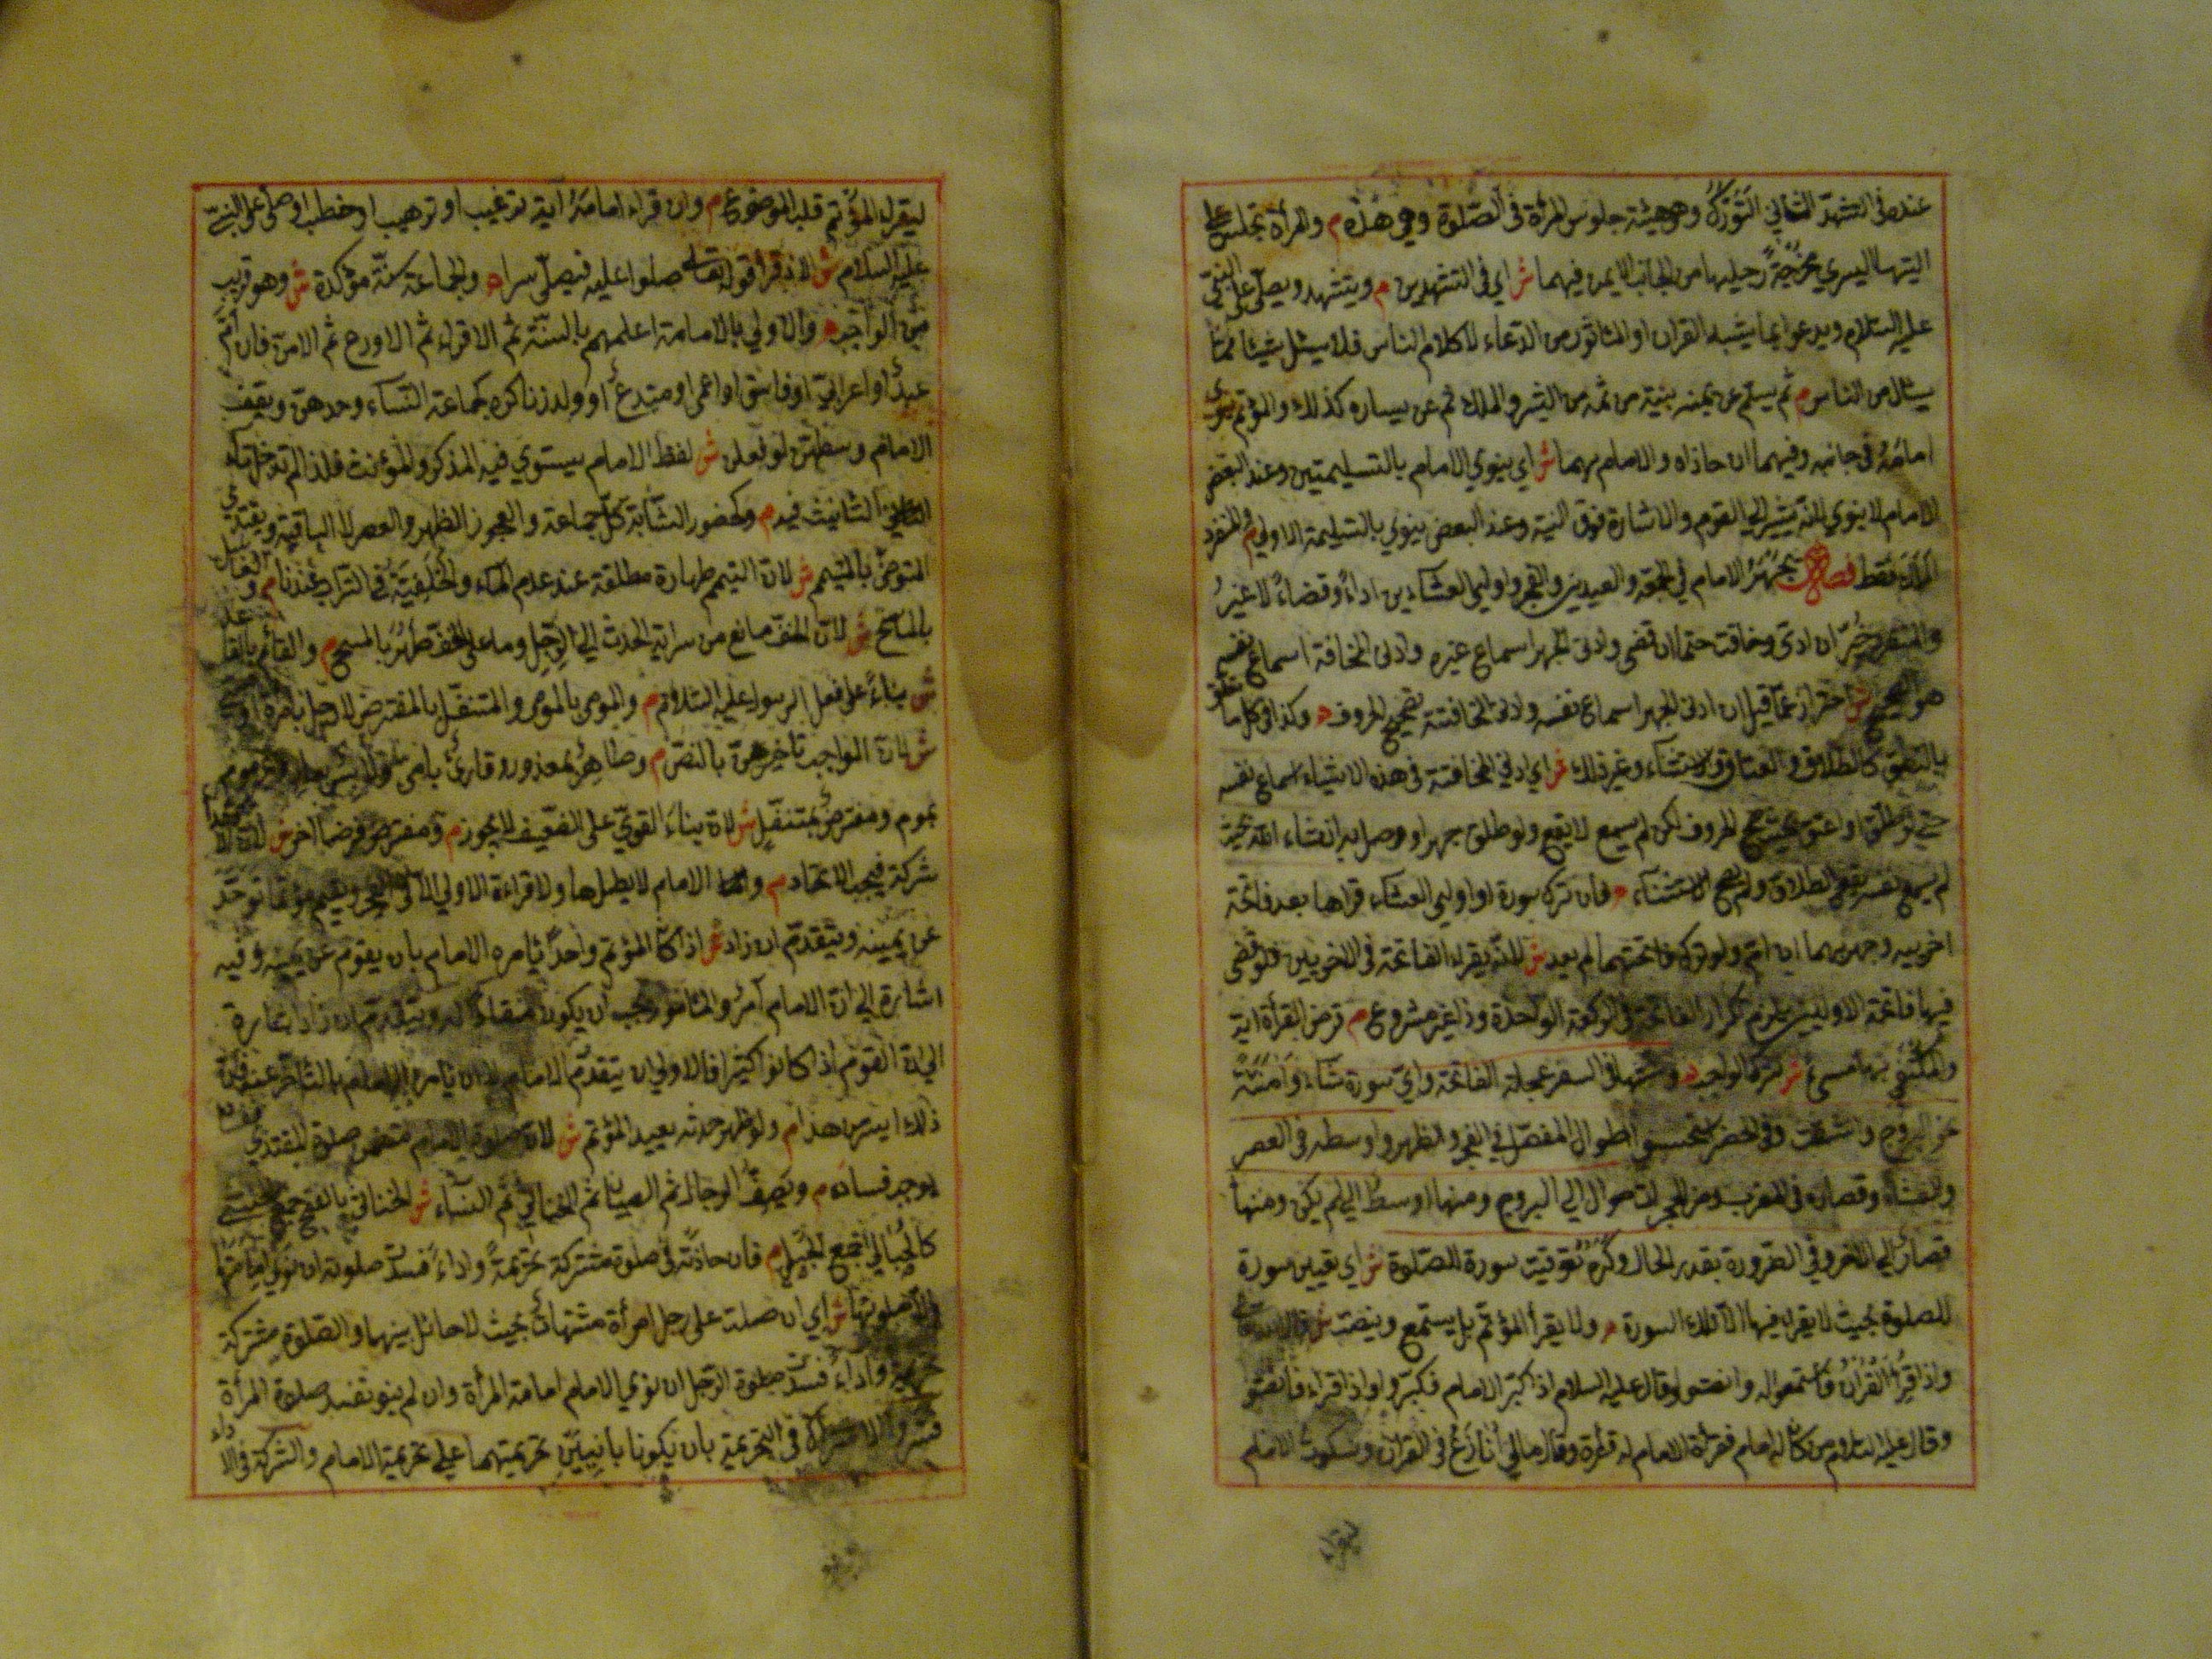 عنده فى التشهد الثانى التورك وهو هيئة جلوس المرأة فى الصلوة وهى هذه م والمرأة تجلس على
اليتها اليسري مخرجة رجليها من الجانب الايمن فيهما ش اي فى التشهدين م ويتشهد ويصلى على النبى
عليه السلام ويدعو بما يشبه القران او الماثور من الدعاء لا كلام الناس فلا يسئل شيئا مما
يسئل من الناس م ثم يسلم عن يمينه بنية من ثمه من البشر والملك ثم عن يساره كذلك والمؤتم ينوي
امامه فى جانبه وفيهما ان حاذاه والامام بهما ش اي ينوي الامام بالتسليمتين وعند البعض
الامام لا ينوي لانه يشير الي القوم والاشارة فوق النية وعند البعض ينوي بالتسليمة الاولي م والمنفرد
الملك فقط فصل يجهر الامام في الجمعة والعيدين والفجر واوليى العشاءين اداءً وقضاءً لا غيرُ
والمنفرد خير ان ادى وخافت حتما ان قضى وادنى الجهر اسماع غيره وادنى المخافتة اسماع نفسه
هو الصحيح ش احتراز عما قيل ان ادنى الجهر اسماع نفسه وادنى المخافتة تصحيح الحروف م وكذا فى كل ما تعلق
بالنطق كالطلاق والعتاق والاستثناء وغير ذلك ش اي ادنى المخافتة فى هذه الاشياء اسماع نفسه
حتى لو طلق او اعتق بحيث صحح الحروف لكن لم يسمع لا يقع ولو طلق جهرا ووصل به ان شاء الله بحيث
لم يسمع نفسه يقع الطلاق ولم يصح الاستثناء م فان ترك سورة اوليى العشاء قراها بعد فاتحة
اخرييه وجهر بهما ان ام ولو ترك فاتحتهما لم يعد ش لانه يقرا الفاتحة فى الاخريين فلو قضى
فيها فاتحة الاوليين يلزم تكرار الفاتحة فى الركعة الواحدة وذا غير مشروع م فرض القرأة اية
والمكتفى بها مسئ ش لترك الواجب م وسنتها فى السفر عجلة الفاتحة واي سورة شاء وامنة
نحو البروج وانشقت وفى الحضر استحسنوا طوال المفصل في الفجر والظهر واوساطه فى العصر
والعشاء وقصاره فى المغرب ومن الحجرات طوال الي البروج ومنها اوسط الي لم يكن ومنها
قصار الي الاخر وفي الضرورة بقدر الحال وكره توقيت سورة للصلوة ش اي تعيين سورة
للصلوة بحيث لا يقرا فيها الا تلك السورة م ولا يقرأ المؤتم بل يستمع وينصت ش قال الله تعالى
واذا قرئ القرآن فاستمعوا له وانصتوا وقال عليه السلام اذا كبر الامام فكبروا واذا قراء فانصتوا
وقال عليه السلام من كان له امام فقرأة الامام له قرأة وقال مالي انازع فى القران وسكوت الامام
ليقراء المؤتم قلب الموضوع م وان قراء امامه اية ترغيب او ترهيب او خطب او صلى على النبى
عليه السلام ش الا اذا قرأ قوله تعالى صلوا عليه فيصلى سرا م والجماعة سنة مؤكدة ش وهو قريب
من الواجب م والاولي بالامامة اعلمهم بالسنة ثم الاقراء ثم الاورع ثم الاسن فان ام
عبد او اعرابي او فاسق او اعمى او مبتدع او ولد زنا كره كجماعة النساء وحدهن ويقف
الامام وسطهن لو فعلن ش لفظ الامام يستوي فيه المذكر والمؤنث فلذا لم تدخل تاء
التانيث فيه م وكحضور الشابة كل جماعة والعجوز الظهر والعصر لا الباقية ويقتدي
المتوضى بالمتيمم ش لان التيمم طهارة مطلقة عند عدم الماء والخلفية فى التراب عندنا م والغاسل
بالماسح ش لان الخف مانع من سراية الحدث الي الرجل وما على الخف طهر بالمسح م والقائم بالقاعد
ش بناءً على فعل الرسول عليه السلام م والمومى بالمومى والمتنفل بالمفترض لا رجل بامرأة او صبي
ش لان الواجب تاخيرهن بالنص م وطاهر بمعذور وقارئ بامى ولابس بعار وغير موم
بموم ومفترض بمتنفل ش لان بناء القوي على الضعيف لا يجوز م ومفترض فرضا اخر ش لان الاقتداء
شركة فيجب الاتحاد م والامام لا يطيلها ولا قراءة الاولي الا فى الفجر ويقيم مؤتما توحد
عن يمينه ويتقدم ان زاد ش اذا كان المؤتم واحدا يامره الامام بان يقوم عن يمينه وفيه
اشارة الي ان الامام آمر والمأموم يجب ان يكون منقادا له ويتقدم ان زاد اشارة
الي ان القوم اذا كانوا كثيرا فالاولي ان يتقدم الامام لا ان يامر الامام بالتاخر عنه فان
ذلك ايسر من هذا م ولو ظهر حدثه يعيد المؤتم ش لان صلوة الامام متضمن صلوة المقتدي
يوجب فساده م ويصف الرجال ثم الصبيان ثم الخناثي ثم النساء ش الخناثى بالفتح جمع الخنثى
كالحبالي جمع الحبلى م فان حاذته فى صلوة مشتركة تحريمةً واداءً فسدت صلوته ان نوي امامتها
والا صلوتها ش اي ان صلت على رجل امرأة مشتهاة بحيث لا حائل بينهما والصلوة مشتركة
تحريمةً واداءً فسدت صلوة الرجل ان نوي الامام امامة المرأة وان لم ينو تفسد صلوة المرأة
فسروا الاشتراك فى التحريمة بان يكونا بانيين تحريمتهما على تحريمة الامام والشركة فى الاداء